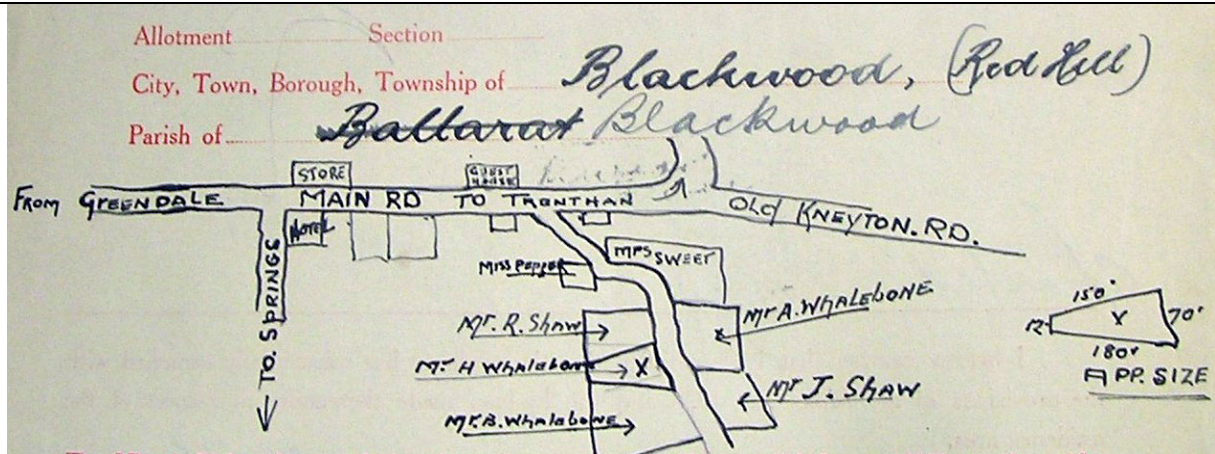 Allotment Section
City, Town, Borough, Township of Blackwood, (Red Hill)
Parish of Ballarat Blackwood
STORE
GUEST HOUSE
FROM GREENDALE MAIN RD TO TRONTHAN
OLD KNEYTON. RD.
HOTEL
TO. SPRINGS
MRS SWEET
MISS PEPPER
Mr. R. Shaw
Mr A. WHALEBONE
Mr. H Whalebone
X
Mr J. SHAW
Mr. B. Whalebone
150'
12'
X
70'
180'
APP. SIZE